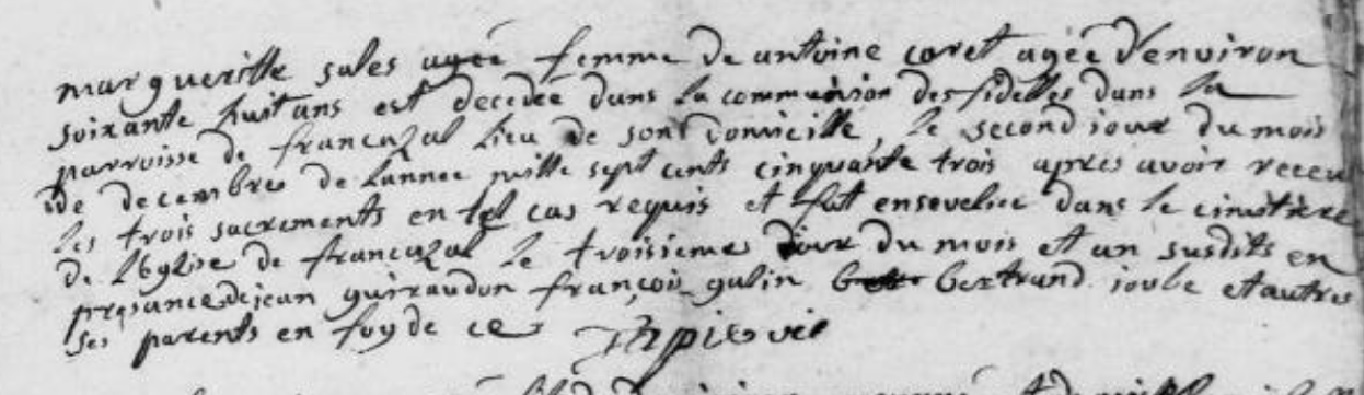 margueritte sales agée femme de antoine coret agée d'environ
soixante huit ans est decedée dans la communion des fidelles dans la
parroisse de francazal lieu de sont domicille, le second iour du mois
de decembre de lannee mille sept cents cinquante trois apres avoir receu
les trois sacrements en tel cas requis et fut ensevelie dans le cimetiere
de lEglise de francazal le troisieme iour du mois et an susdits en
presance de jean guiraudon françois galin bertrand ioule et autres
ses parents en foy de ce